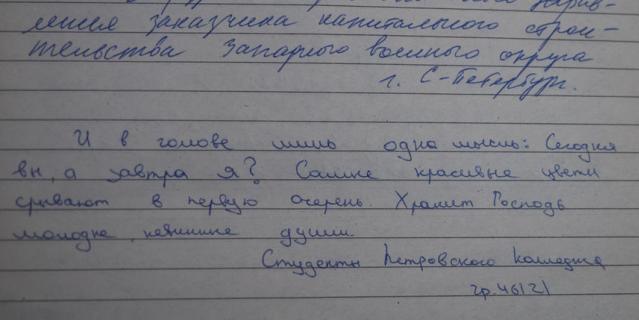 ления заказчика капитального строи-
тельства Западного военного округа
г. С-Петербург.
И в голове лишь одна мысль: Сегодня
вы, а завтра я? Самые красивые цветы
срывают в первую очередь. Хранит Господь
молодые, невинные души.
Студенты Петровского Колледжа
гр. 46121